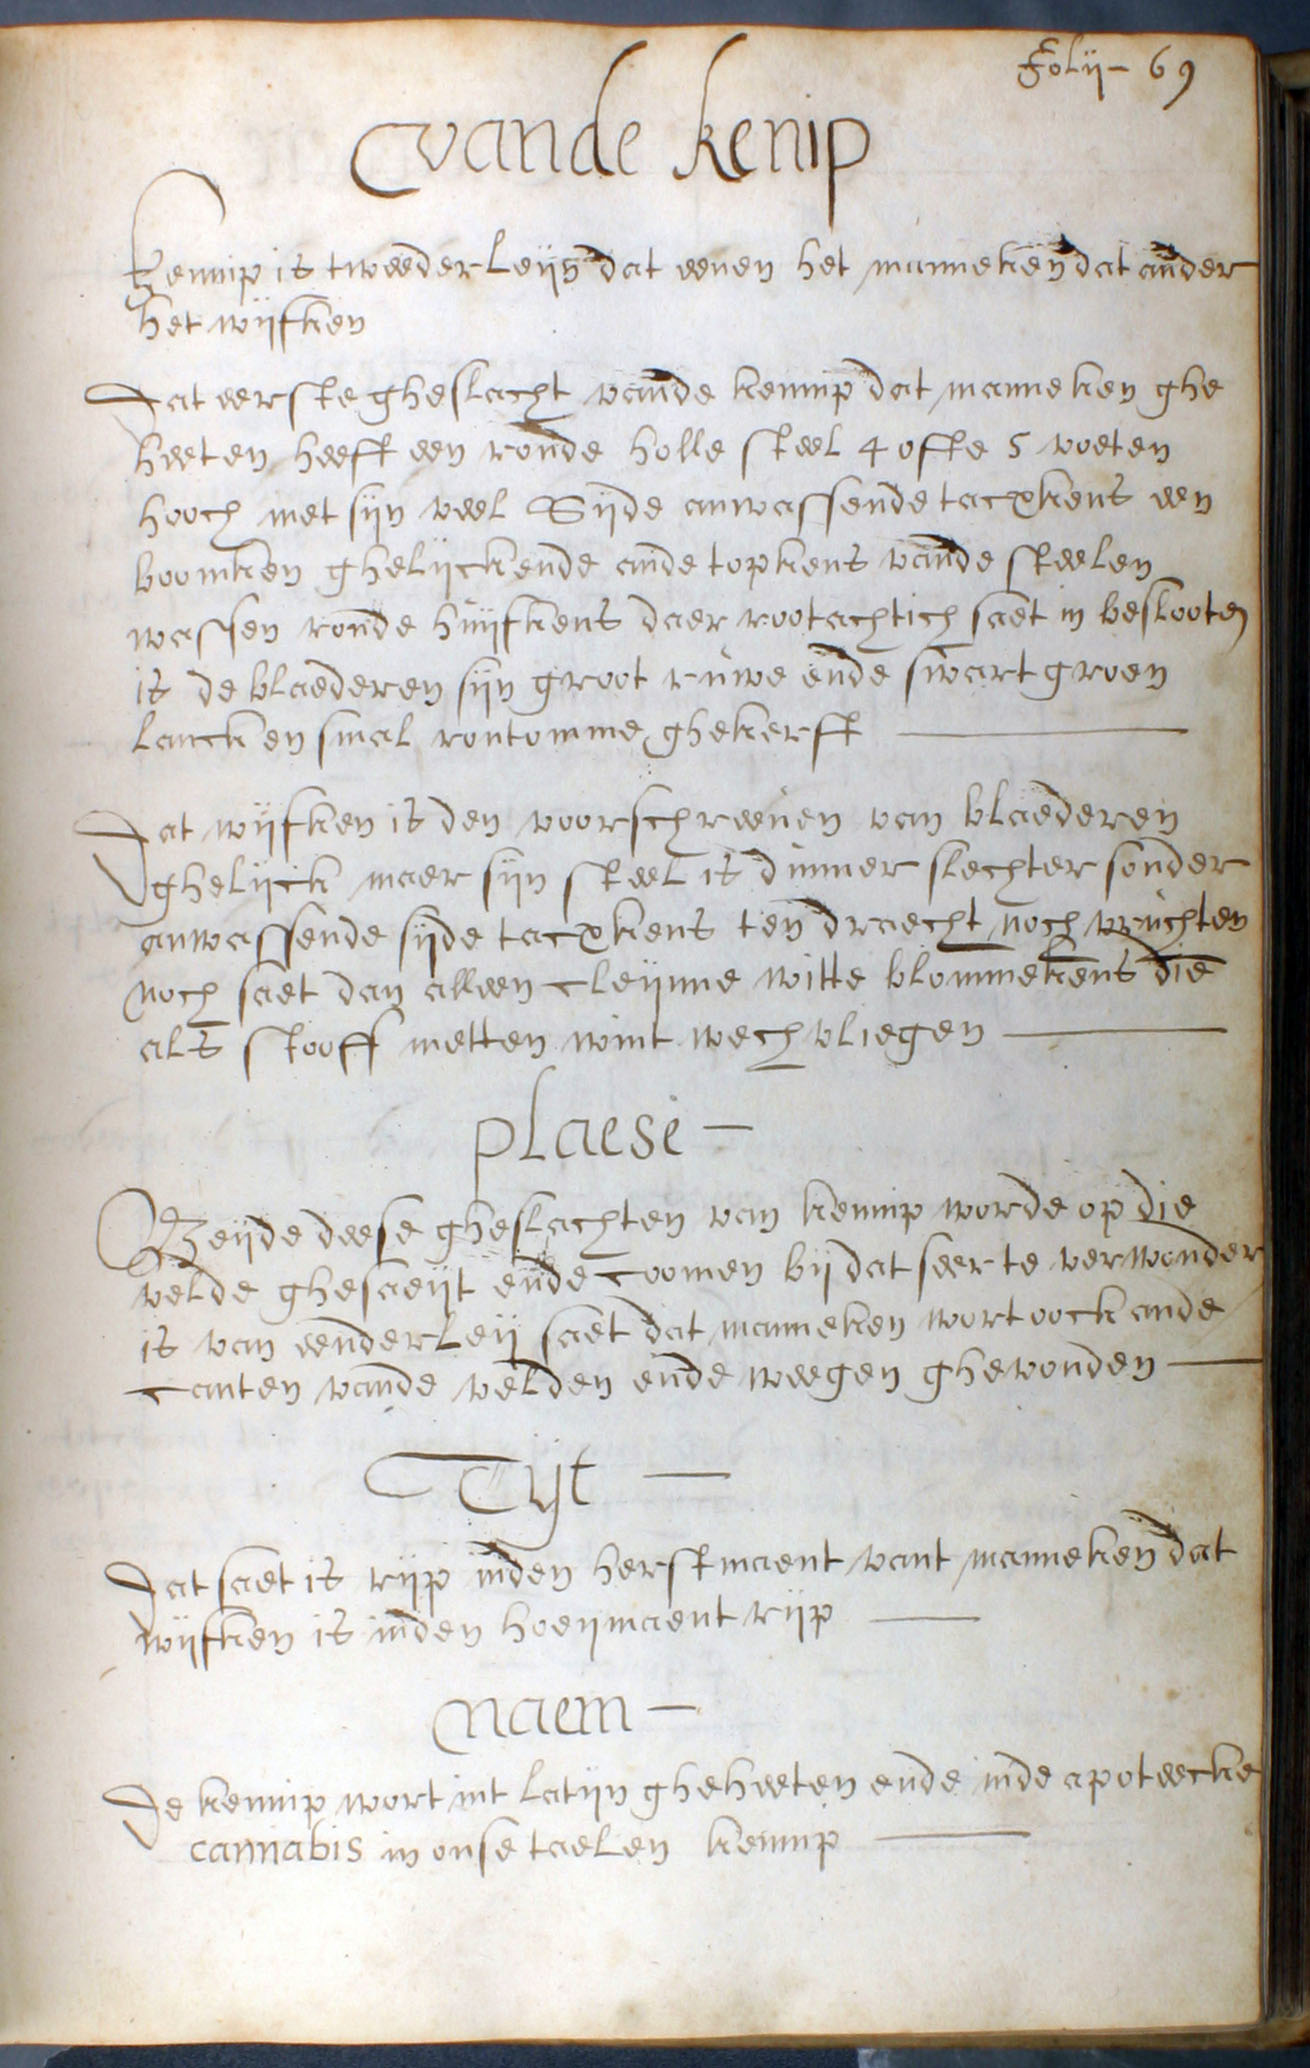 Folij - 69
vande kenip
Kennip is tweederleijn dat eenen het manneken dat ander
het wijfken
Dat eerste gheslacht vande kennip dat manneken ghe
heeten heeft een ronde holle steel 4 ofte 5 voeten
hooch met sijn veel Sijde anwassende tacxkens een
boomken ghelijckende ande topkens vande steelen
wassen ronde huijfkens daer rootachtich saet in beslooten
is de blaederen sijn groot ruwe ende swart groen
lanck en smal rontomme ghekerft
Dat wijfken is den voorschreeven van blaederen
ghelijck maer sijn steel is dunner slechter sonder
anwassende sijde tacxkens ten draecht noch vruchten
noch saet dan alleen cleijnne witte blommekens die
als stooff metten wint wech vliegen
plaese -
Beijde deese gheslachten van kennip worde op die
velde ghesaeijt ende coomen bij dat seer te verwonder
is van eenderleij saet dat manneken wort oock ande
canten vande velden ende weegen ghevonden
Tijt
Dat saet is rijp inden herstmaent vant manneken dat
wijfken is inden hoeijmaent rijp
naem -
De kennip wort int latijn gheheeten ende inde apoteecke
cannabis in onse taelen kennip